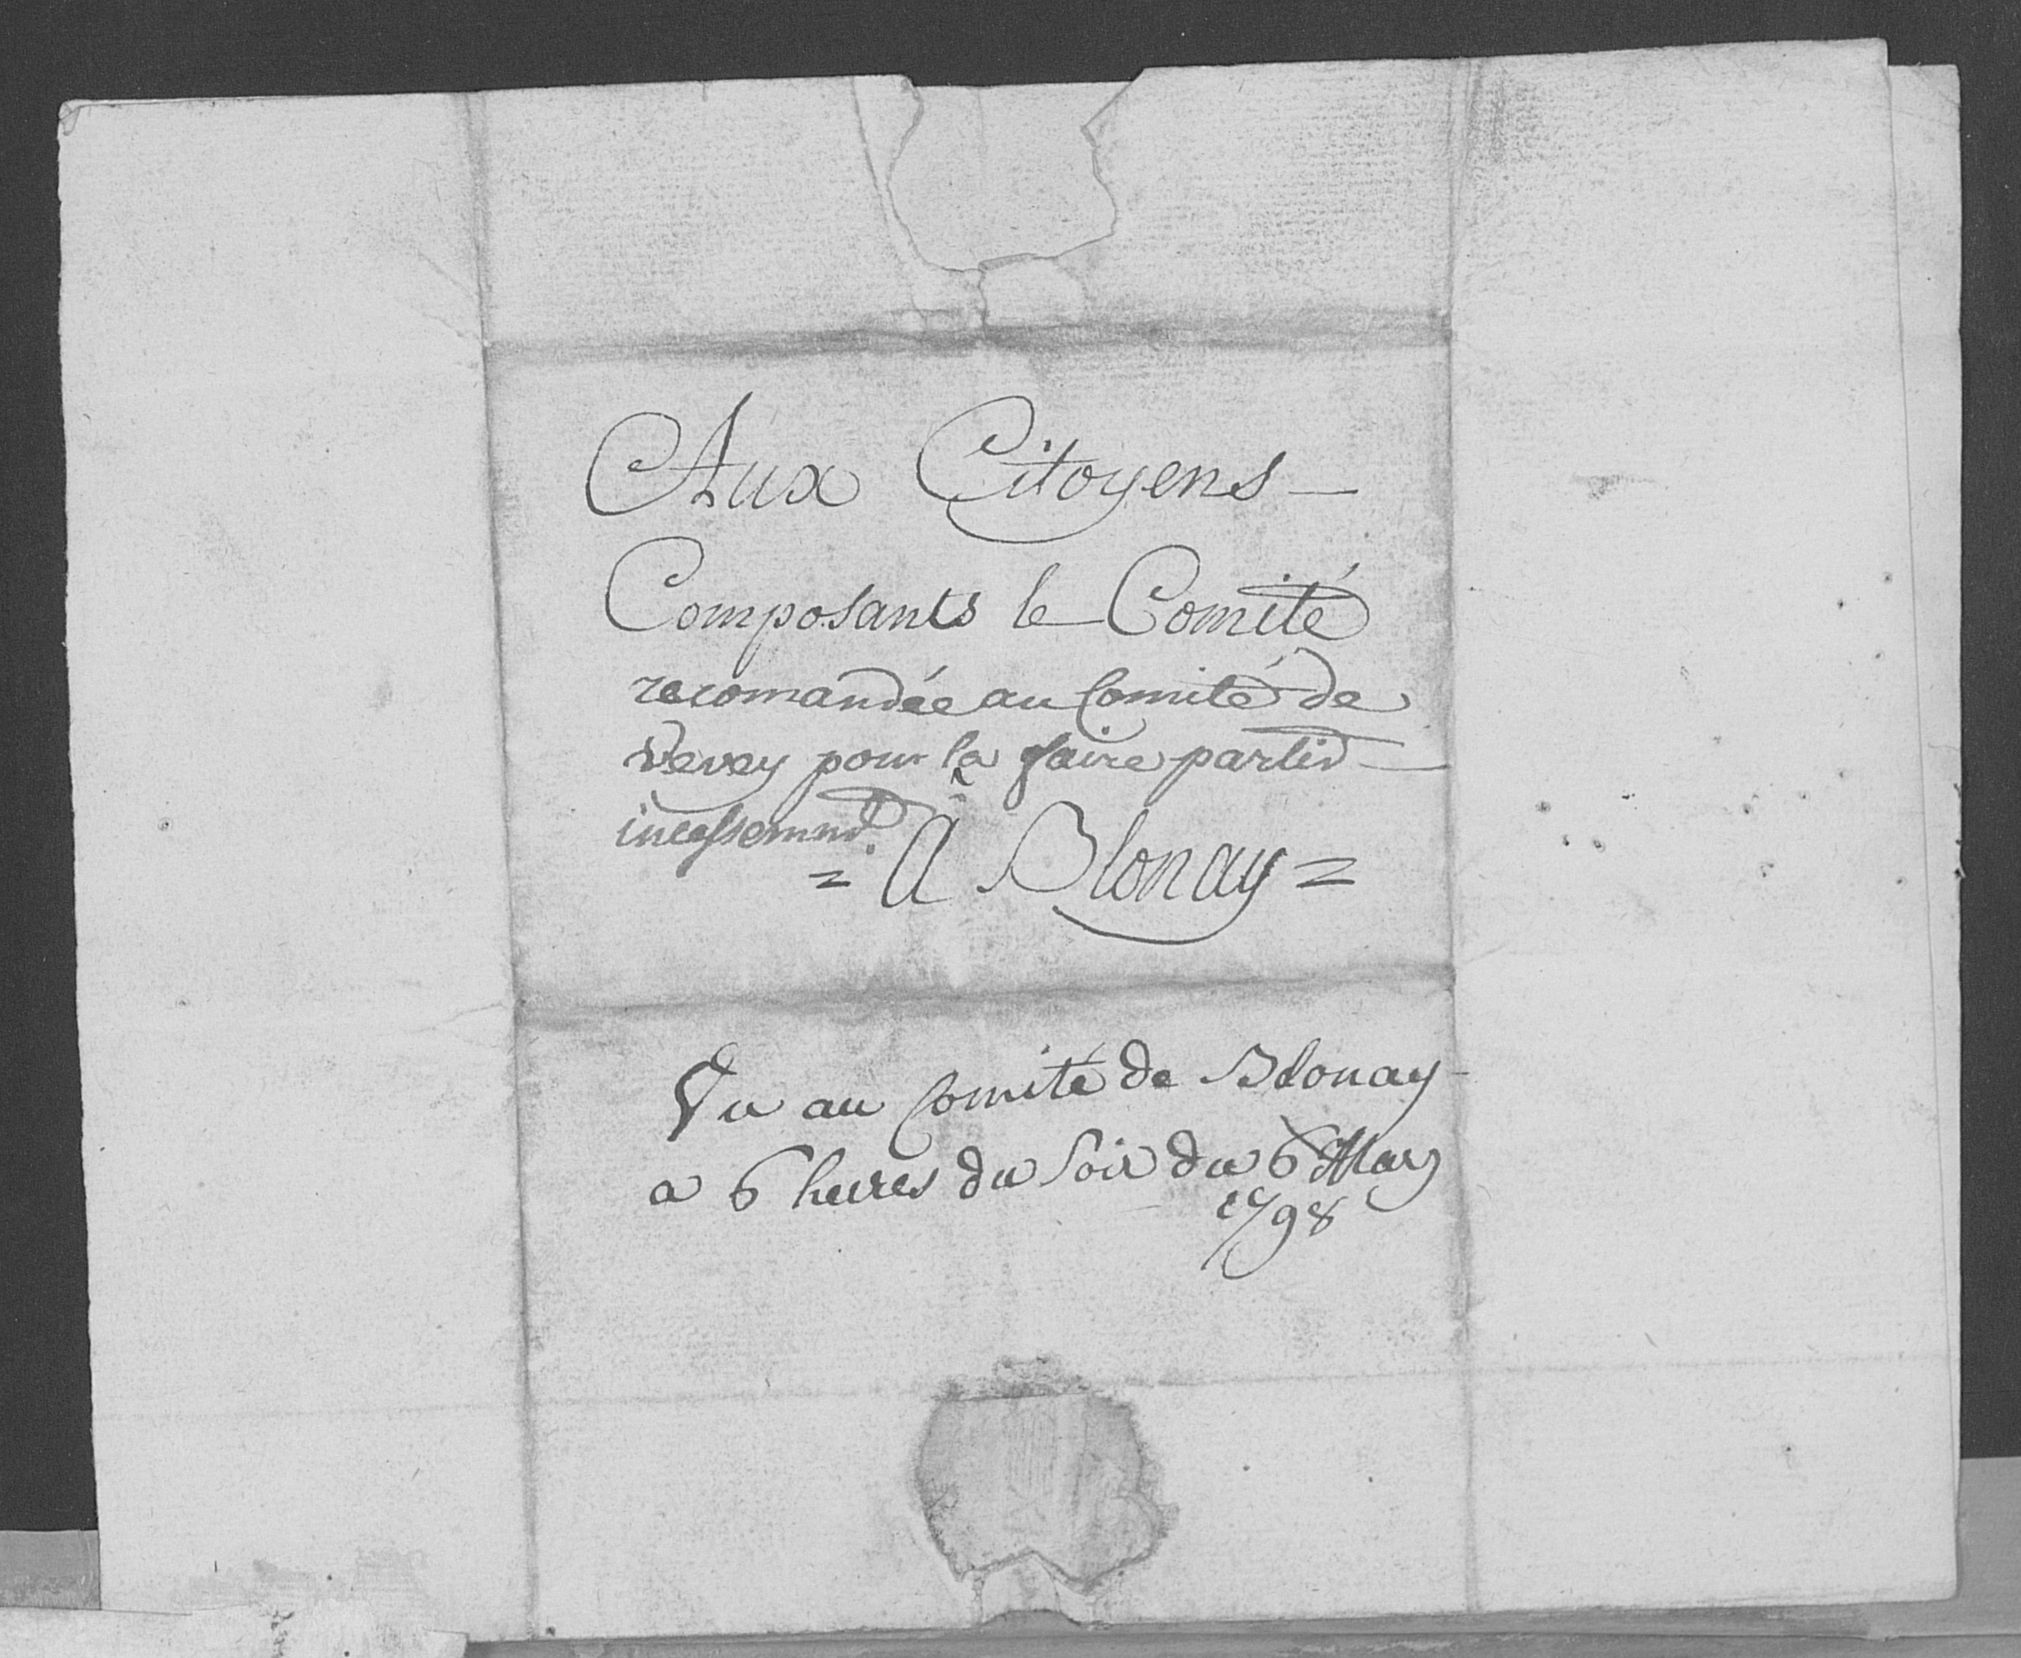 Aux Citoyens —
Composants le Comité
recomandée au Comité de
Vevey pour la faire partir —
incessemnt.
= A Blonay =
Vu au Comité de Blonay
a 6 heures du Soir du 6 Mars
1798